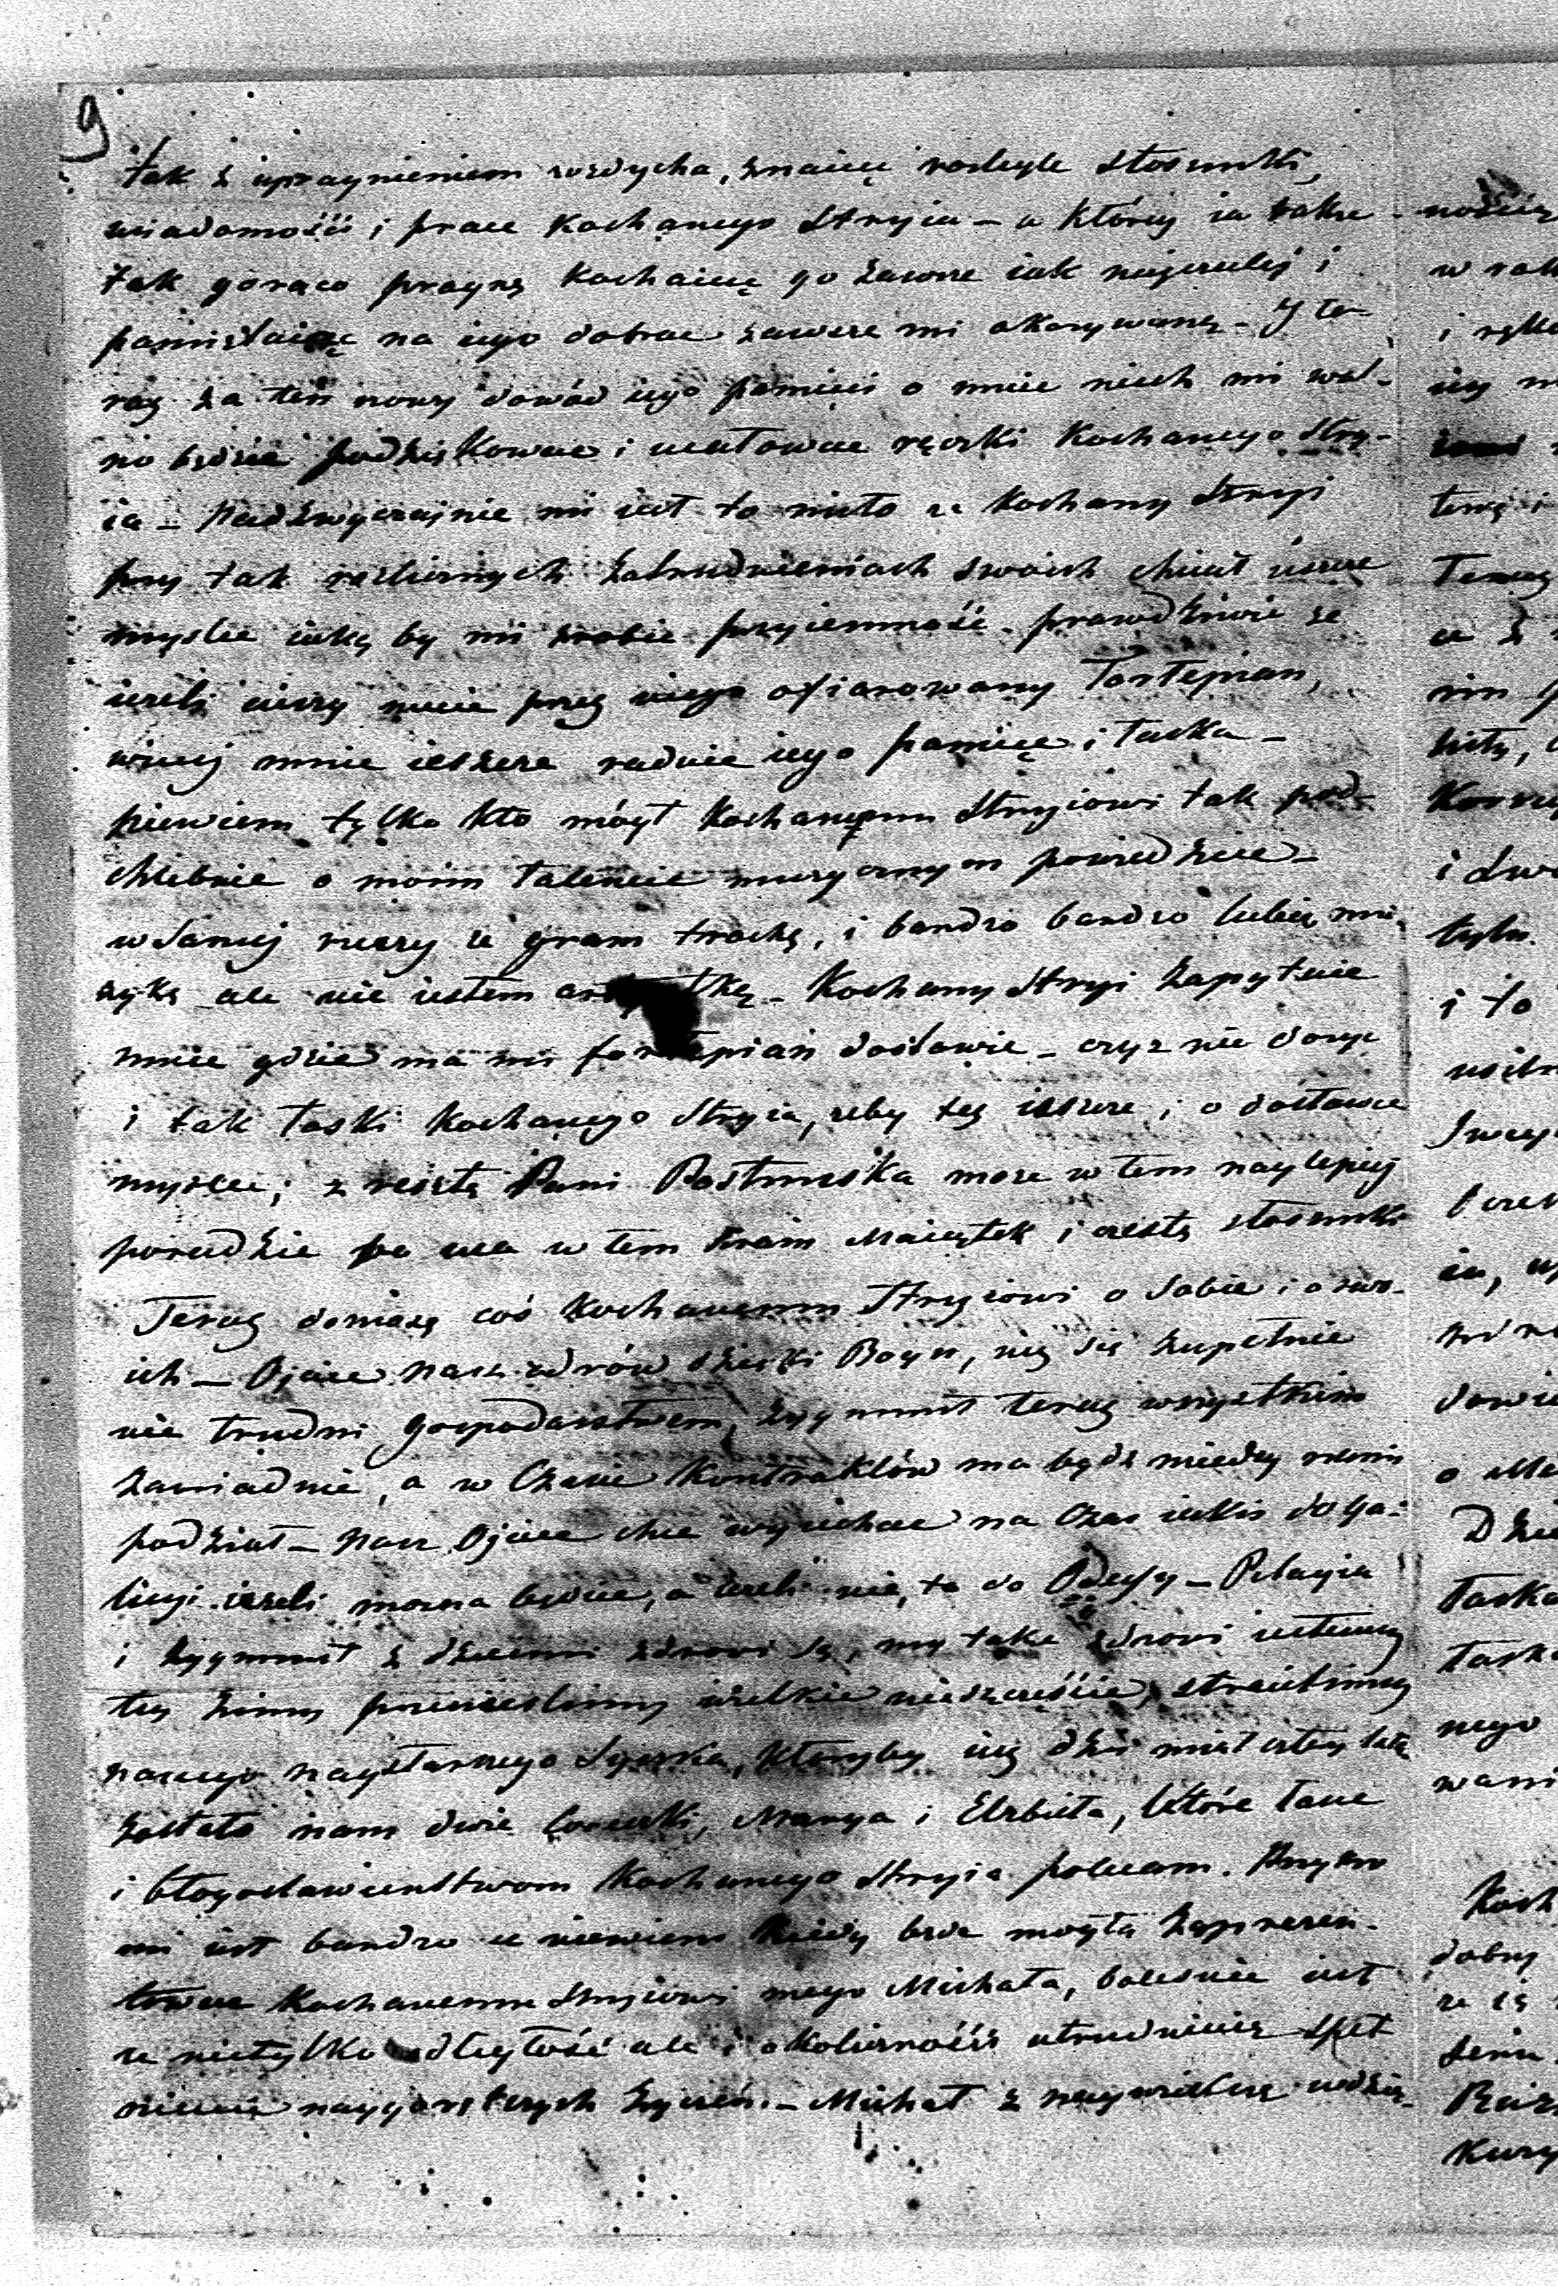 9
tak z upragnieniem wzdycha, znaiąc rozległe stosunki,
wiadomości i prace Kochanego Stryia – a której ia także
tak gorąco pragnę kochaiąc go zawsze iak najczulej i
pamiętaiąc na iego dobroć zawsze mi okazywaną – I te-
raz za ten nowy dowód iego pamięci o mnie niech mi wol-
no będzie podziękować i ucałować rączki Kochanego Stry-
ia – Nadzwyczajnie mi iest to miło że Kochany Stryi
przy tak rozlicznych zatrudnieniach swoich chciał ieszcze
myslić iaką by mi zrobić przyiemność. prawdziwie że
ieżeli cieszy mnie przez niego ofiarowany Fortepian,
więcej mnie ieszcze raduie iego pamięć i łaska –
niewiem tylko kto mógł Kochanemu Stryiowi tak po-
chlebnie o moim talencie muzycznym powiedzieć –
w samej rzeczy że gram trochę, i bardzo bardzo lubię mu-
zykę ale nie iestem artystką – Kochany Stryi zapytuie
mnie gdzie ma mi fortepian dostawić – czyż nie dosyć
i tak łaski Kochanego Stryia, żeby też ieszcze i o dostawie
myslić; z resztą Pani może w tem naylepiej
poradzić bo ma w tem kraiu Maiątek i częste stosunki
Teraz doniosę coś Kochanemu Stryiowi o Sobie i o swo-
ich – Ojciec nasz zdrów dzięki Bogu, iuż się zupełnie
nie trudni gospodarstwem, Zygmunt teraz wszystkim
zawiaduie, a w Czasie Kontraktów ma bydź między nami
podział – Nasz Ojciec chce wyiechać na Czas iakis do Ga-
licyi ieżeli można będzie, a ieżeli nie, to do Odessy – Pelagia
i Zygmunt z dziećmi zdrowi są, my także zdrowi iestesmy
tey zimy ponieslismy wielkie nieszczęście, straciliśmy
naszego naystarszego Synka, któryby iuż dziś miał cztery lata
zostało nam dwie Coreczki, Marya i Elzbieta, które łasce
i błogosławieństwom Kochanego Stryia polecam. Przykro
mi iest bardzo że niewiem kiedy będę mogła zaprezen-
tować Kochanemu Stryiowi mego Michała, boleśnie iest
że nietylko odległość ale i okoliczności utrudniaią speł
nienie naygorętszych życzeń. – Michał z naywiększą wdzię-